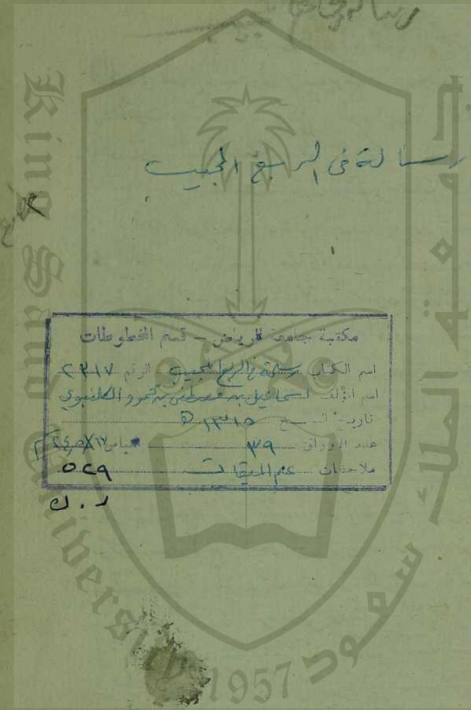 رسالة
رسالة في الربع المجيب
مكتبة جامعة الرياض – قسم المخطوطات
اسم الكتاب رسالة في الربع المجيب الرقم ٢٣١٧
اسم المؤلف اسماعيل بن مصطفى بن محمود الكلنبوي
تاريخ النسخ ١٣١٥ هـ
عدد الأوراق ٣٩
ملاحظات علم الميقات ٥٢٩
ر . ك
King Saud University
جامعة الملك سعود
1957